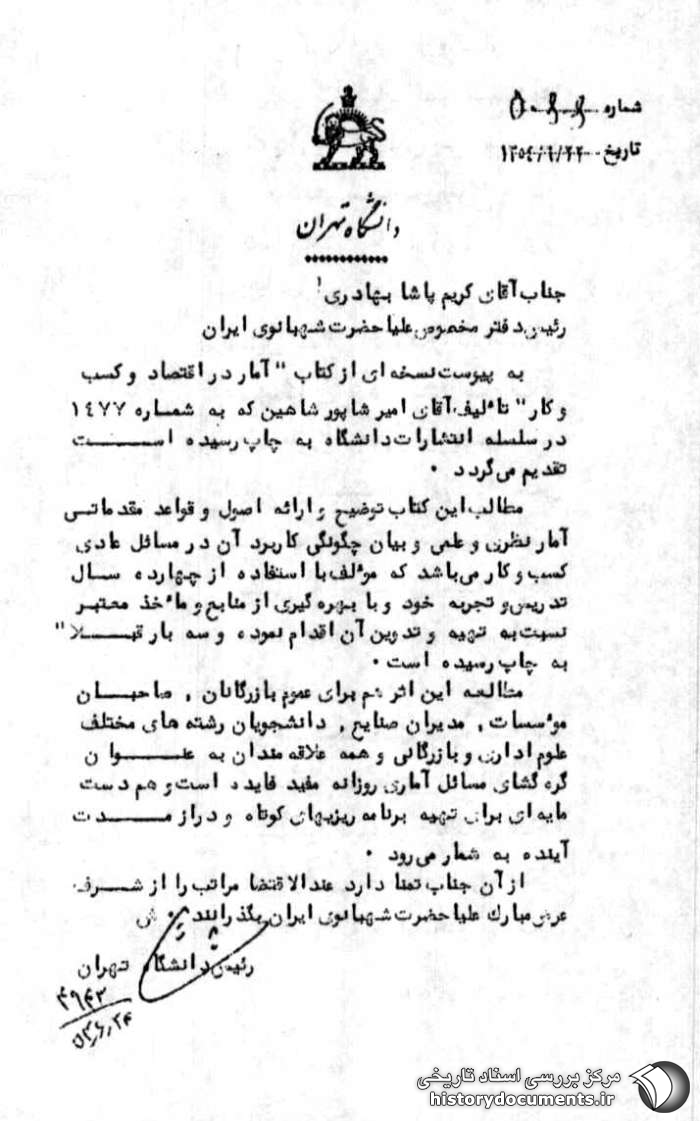 شماره
تاریخ ۱۳۵۴/۶/۲۲
دانشگاه تهران
جناب آقای کریم پاشا بهادری!
رئیس دفتر مخصوص علیاحضرت شهبانوی ایران
به پیوست نسخه ای از کتاب "آمار در اقتصاد و کسب
و کار" تألیف آقای امیر شاپور شاهین که به شماره ۱٤۷۷
در سلسله انتشارات دانشگاه به چاپ رسیده اســـت
تقدیم می گردد .
مطالب این کتاب توضیح و ارائه اصول و قواعد مقدماتـی
آمار نظری و علمی و بیان چگونگی کاربرد آن در مسائل عادی
کسب و کار می باشد که مؤلف با استفاده از چهارده سـال
تدریس و تجربه خود و با بهره گیری از منابع و مآخذ معتبـر
نسبت به تهیه و تدوین آن اقدام نموده و سه بار قبـــلا"
به چاپ رسیده است .
مطالعه این اثر هم برای عموم بازرگانان , صاحبـــان
مؤسسات , مدیران صنایع , دانشجویان رشته های مختلف
علوم اداری و بازرگانی و همه علاقه مندان به عنـــوان
گره گشای مسائل آماری روزانه مفید فایده است و هم دست
مایه ای برای تهیه برنامه ریزیهای کوتاه و دراز مـــدت
آینده به شمار می رود .
از آن جناب تمنا دارد عندالاقتضا مراتب را از شـــرف
عرض مبارک علیاحضرت شهبانوی ایران بگذرانند
رئیس دانشگاه تهران
۴۹۴۳
مرکز بررسی اسناد تاریخی
historydocuments.ir